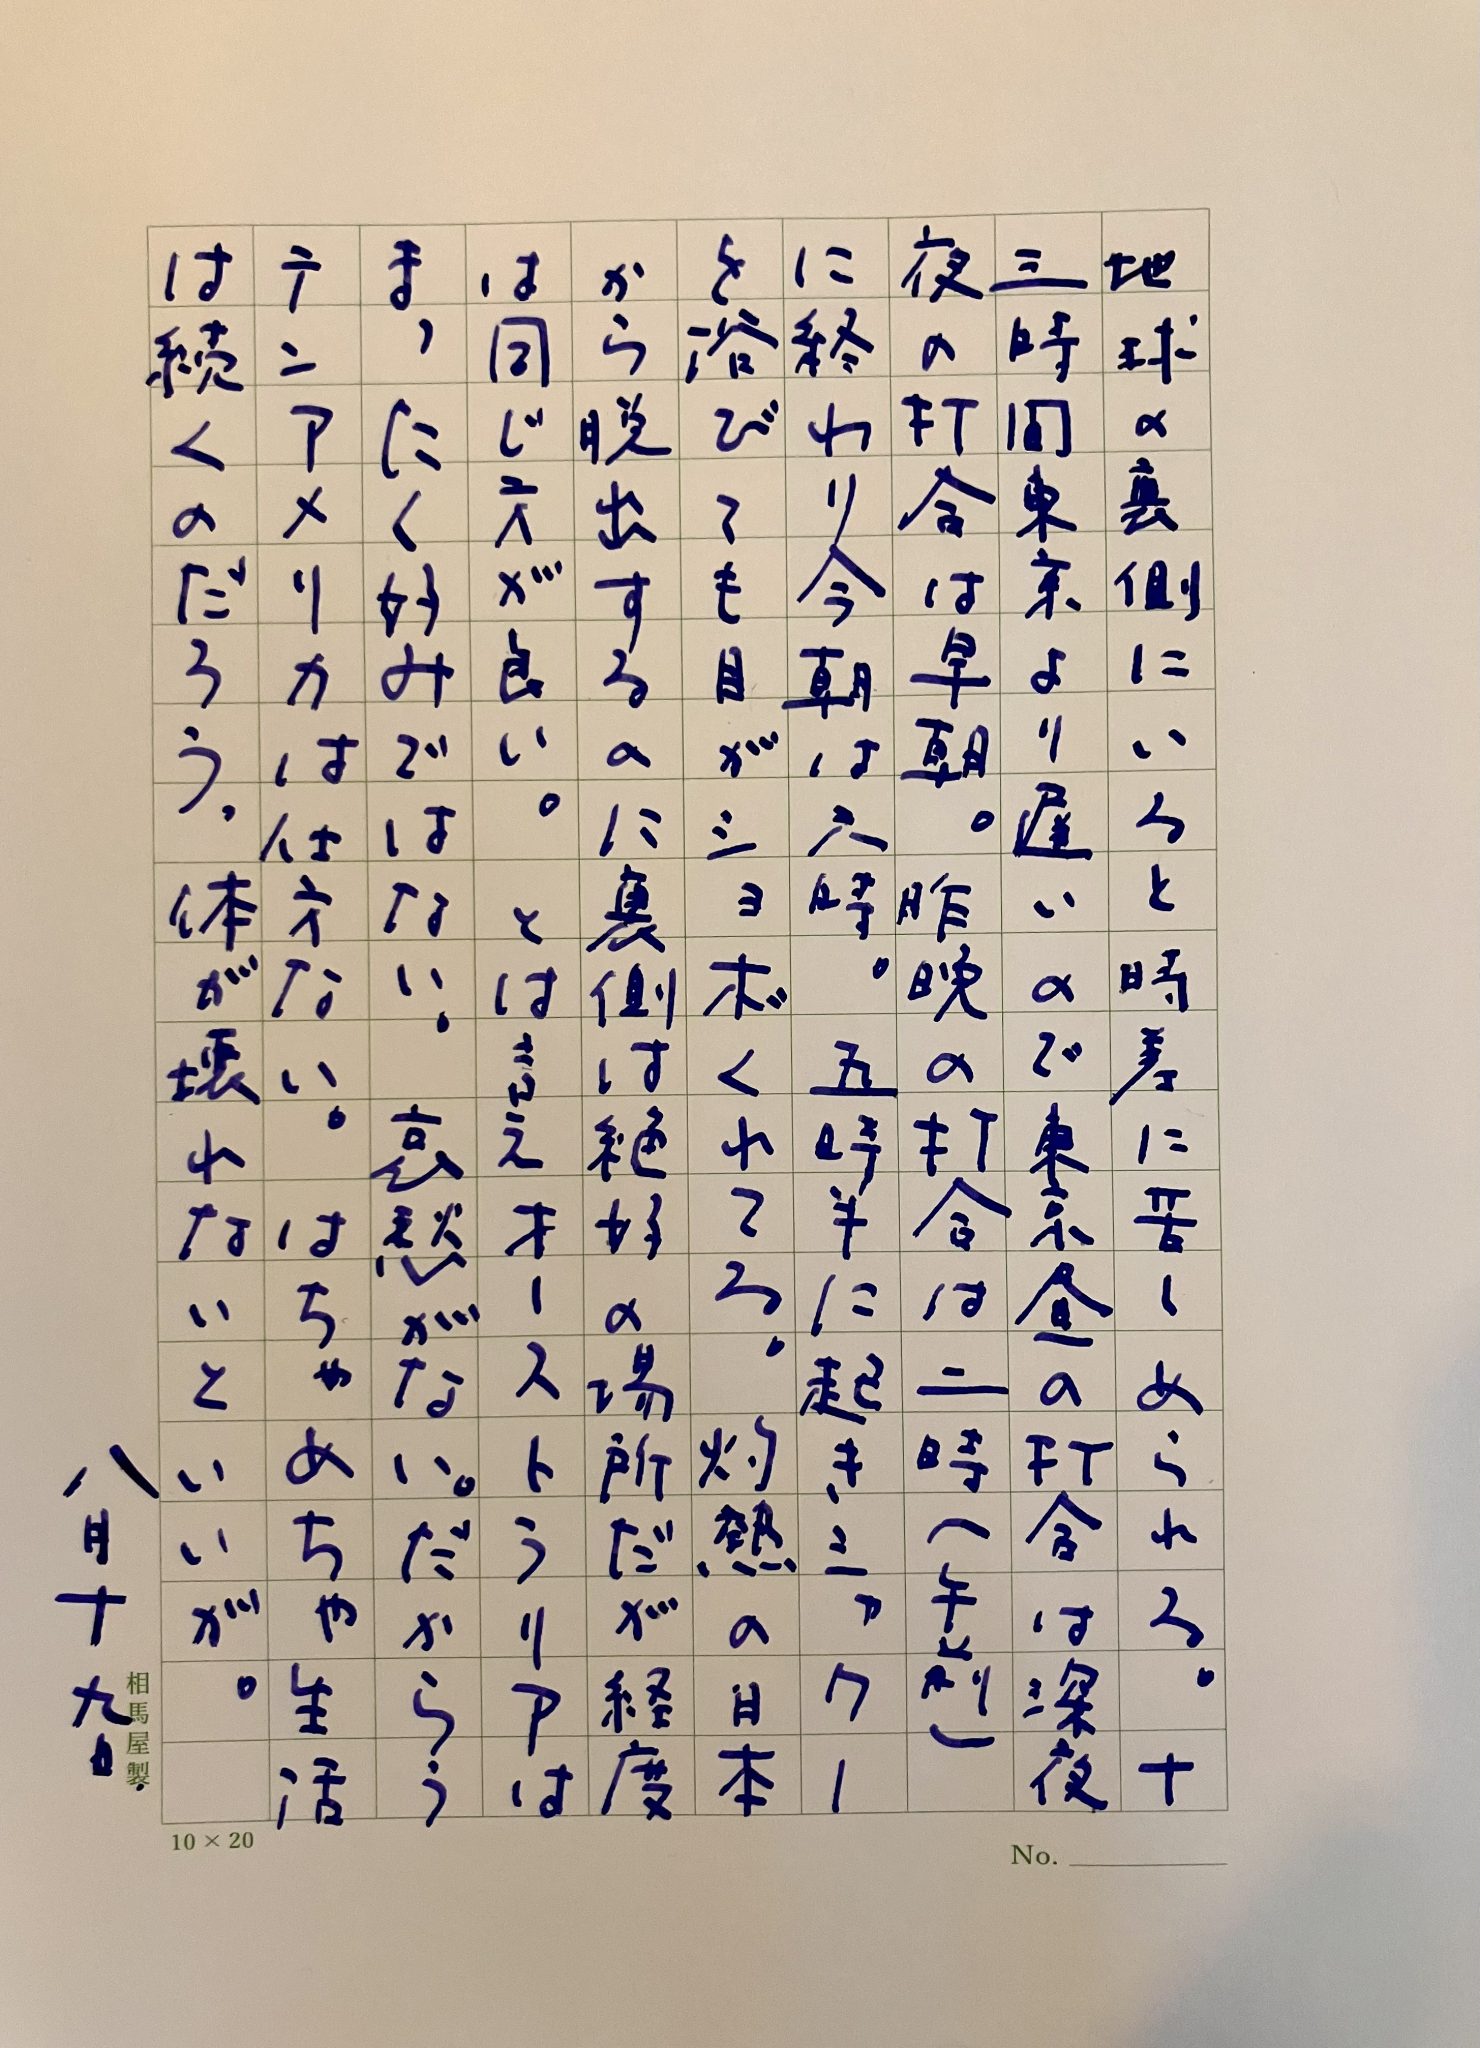 地球の裏側にいると時差に苦しめられる。十
三時間東京より遅いので東京昼の打合は深夜
夜の打合は早朝。昨晩の打合は二時(午前)
に終わり今朝は六時。五時半に起きシャワー
を浴びても目がショボくれてる。灼熱の日本
から脱出するのに裏側は絶好の場所だが経度
は同じ方が良い。とは言えオーストラリアは
まったく好みではない。哀愁がない。だからラ
テンアメリカは仕方ない。はちゃめちゃ生活
は続くのだろう。体が壊れないといいが。
八月十九日
相馬屋製
10×20
No.